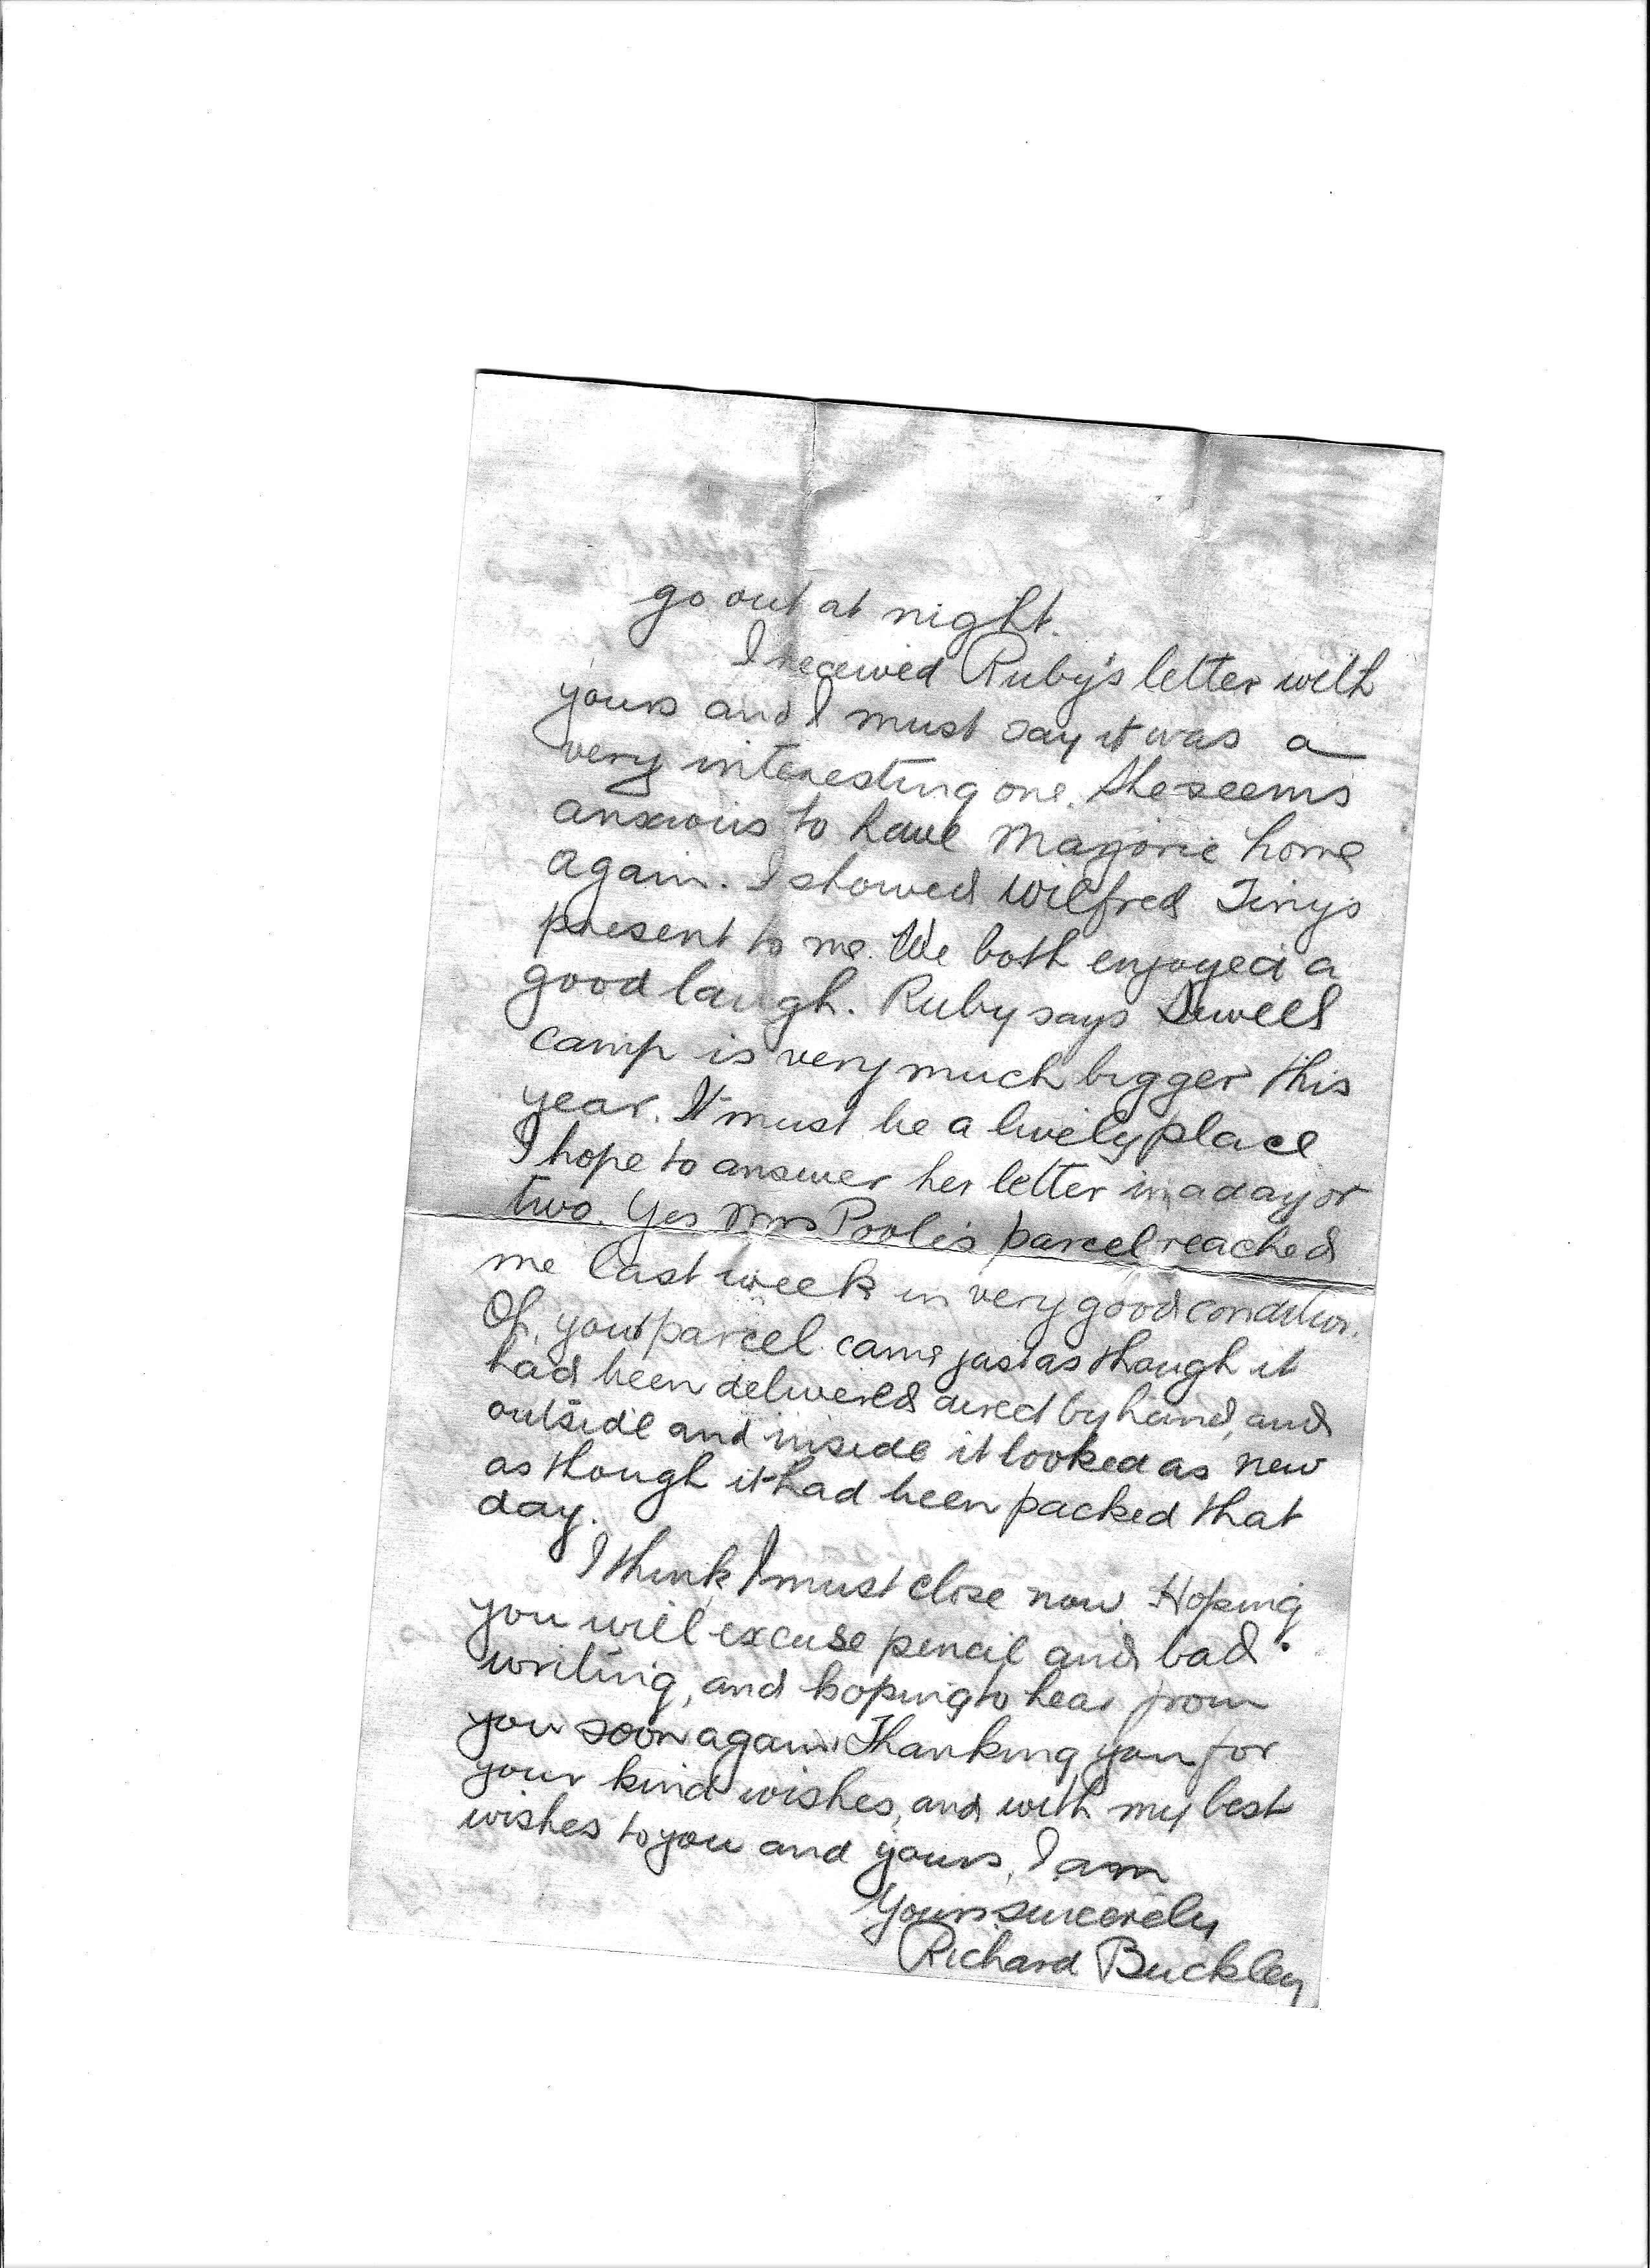 go out at night.
I received Ruby's letter with
yours and I must say it was a
very interesting one. She seems
anxious to have Marjorie home
again. I showed Wilfred Tinys
present to me. We both enjoyed a
good laugh. Ruby says Sewell
camp is very much bigger this
year. It must be a lively place
I hope to answer her letter in a day or
two. Yes Mrs Pool's parcel reached
me last week in very good condition.
Oh, your parcel came just as though it
had been delivered direct by hand, and
outside and inside it looked as new
as though it had been packed that
day.
I think I must close now. Hoping
you will excuse pencil and bad
writing, and hoping to hear from
you soon again. Thanking you for
your kind wishes, and with my best
wishes to you and yours, I am
Yours sincerely
Richard Buckley